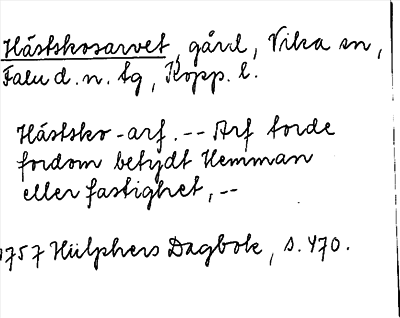 Hästskosarvet, gård, Vika sn,
Falu d. n. tg, Kopp. l.
Hästsko-arf. -- Arf torde
fordom betydt Hemman
eller fastighet, --
1757 Hülphers Dagbok, s. 470.